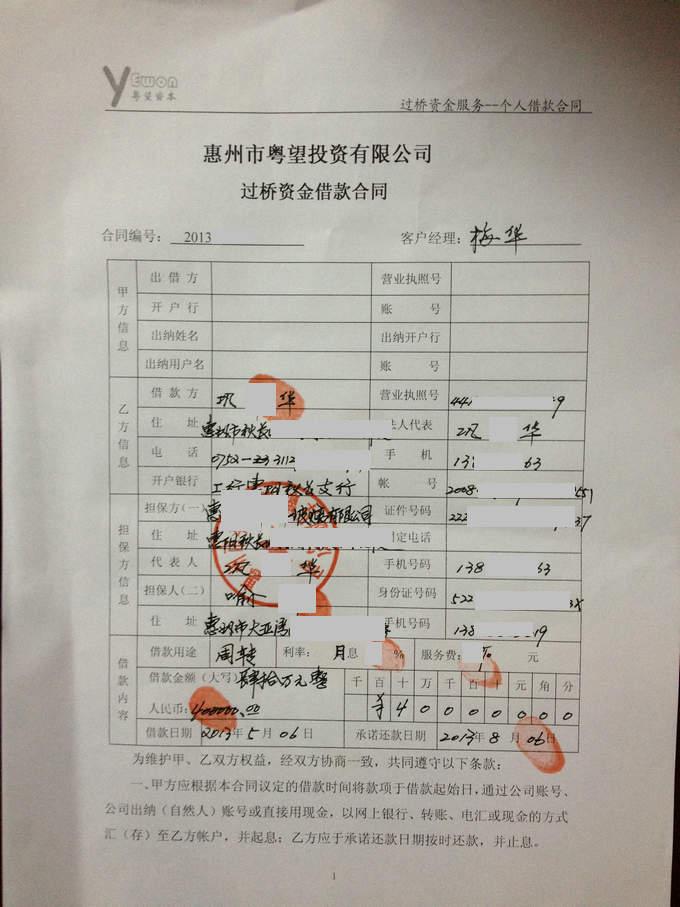 YEwon
粤望资本
过桥资金服务--个人借款合同
惠州市粤望投资有限公司
过桥资金借款合同
合同编号： 2013
客户经理：梅华
甲方信息
出借方 营业执照号
开户行 账号
出纳姓名 出纳开户行
出纳用户名 账号
乙方信息
借款方 华 营业执照号 44 9
住址 惠阳市秋长 法人代表 华
电话 0752- 3112 手机 13 63
开户银行 工行惠阳秋长支行 帐号 2008 451
担保方信息
担保方(一) 惠 有限公司 证件号码 222 37
住址 惠阳秋长 固定电话
代表人 华 手机号码 138 63
担保人(二) 身份证号码 522 38
住址 惠州市大亚湾 手机号码 138 19
借款内容
借款用途 周转 利率： 月息 % 服务费： % 元
借款金额(大写) 肆拾万元整 千百十万千百十元角分
人民币：400000.00 ¥40000000
借款日期 2013年5月06日 承诺还款日期 2013年8月06日
为维护甲、乙双方权益，经双方协商一致，共同遵守以下条款：
一、甲方应根据本合同议定的借款时间将款项于借款起始日，通过公司账号、
公司出纳（自然人）账号或直接用现金，以网上银行、转账、电汇或现金的方式
汇（存）至乙方帐户，并起息；乙方应于承诺还款日期按时还款，并止息。
1